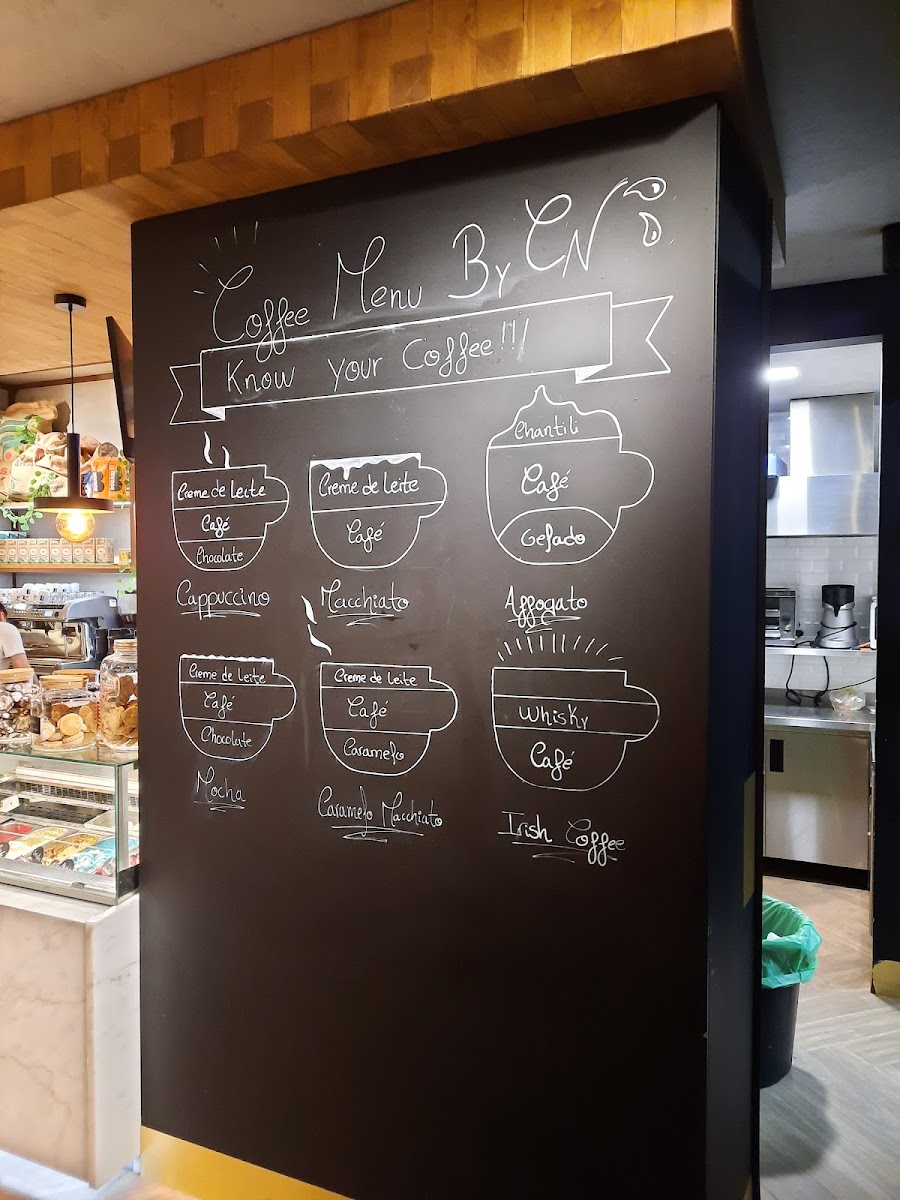 Coffee Menu By CN
Know your Coffee!!!
Creme de Leite
Café
Chocolate
Cappuccino
Creme de Leite
Café
Macchiato
Chantili
Café
Gelado
Affogato
Creme de Leite
Café
Chocolate
Mocha
Creme de Leite
Café
Caramelo
Caramelo Macchiato
Whisky
Café
Irish Coffee